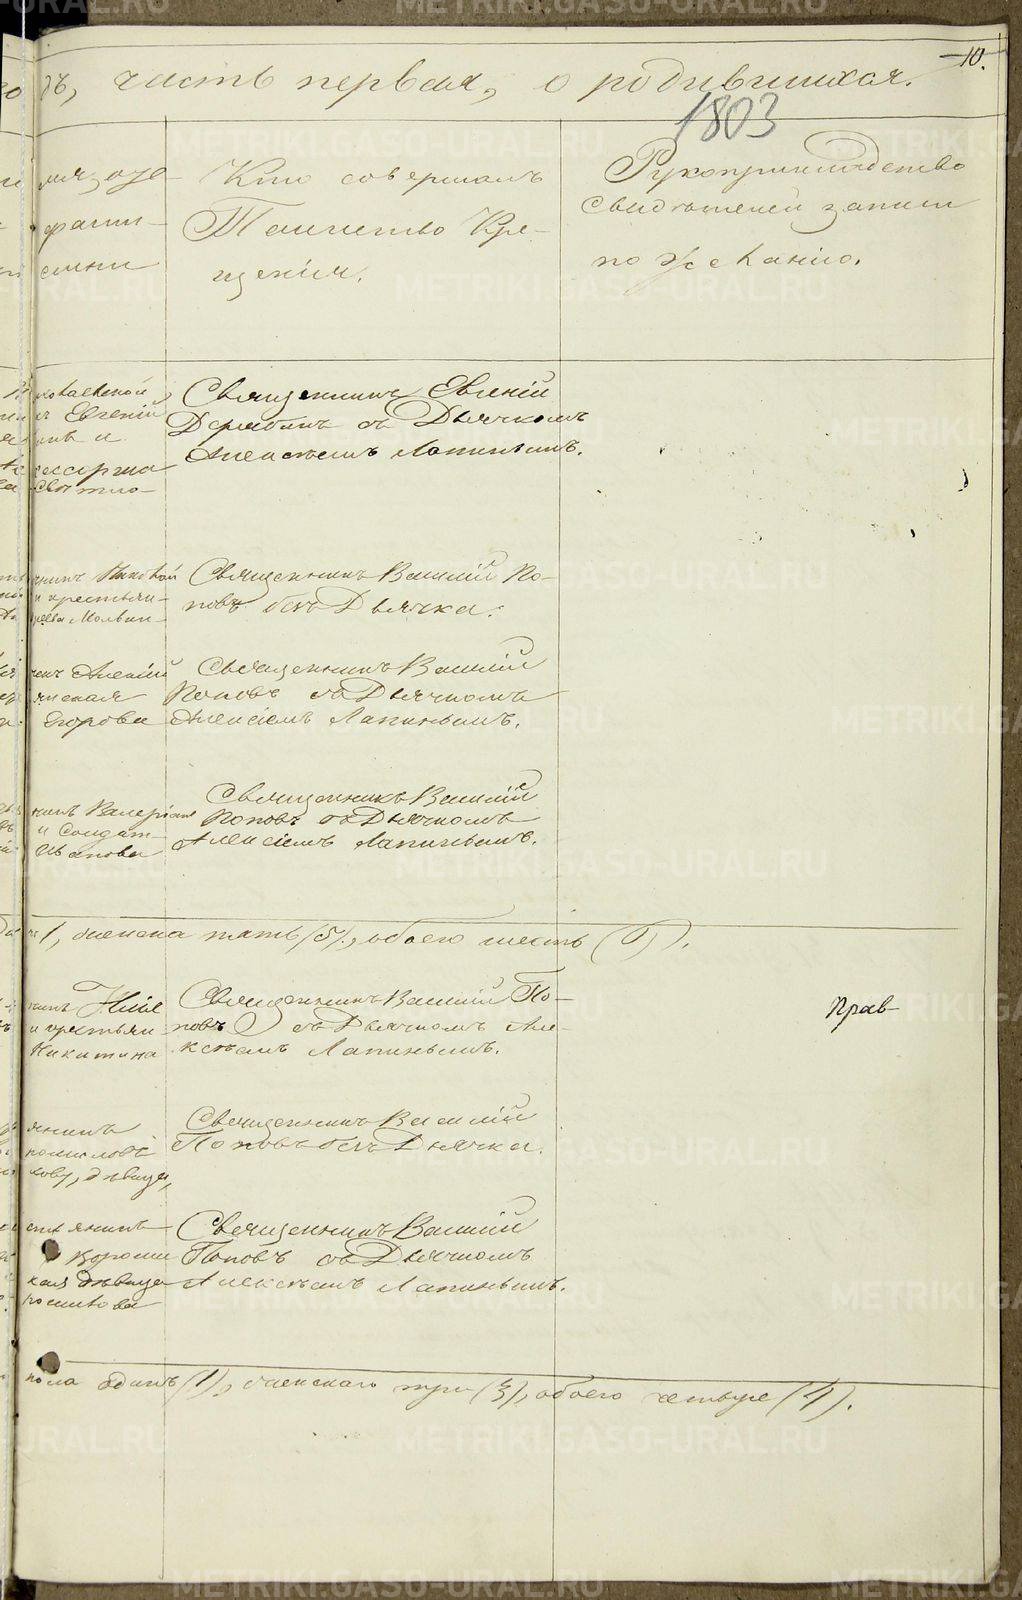 10.
дъ, часть первая, о родившихся.
1803
Кто совершалъ
Таинство Кре-
щенія.
Рукоприкладство
свидѣтелей записи
по желанію.
фами-
Евгеній
и
Священникъ Евгеній
съ Дьячкомъ
Алексѣемъ Лапинымъ.
и крестьян-
Священникъ Василій По-
повъ безъ Дьячка.
Алексій
Егорова
Священникъ Василій
Поповъ съ Дьячкомъ
Алексіемъ Лапинымъ.
Валеріан
и Солдат-
Иванова
Священникъ Василій
Поповъ съ Дьячкомъ
Алексіемъ Лапинымъ.
1, женска пять (5), обоего шесть (6).
и крестьян
Никитина
Священникъ Василій По-
повъ съ Дьячкомъ Але-
ксѣемъ Лапинымъ.
Прав-
янинъ
дѣвица,
Священникъ Василій
Поповъ безъ Дьячка.
янинъ
кая дѣвица
Священникъ Василій
Поповъ съ Дьячкомъ
Алексѣемъ Лапинымъ.
пола одинъ (1), женскаго три (3), обоего четыре (4).
METRIKI.GASO-URAL.RU